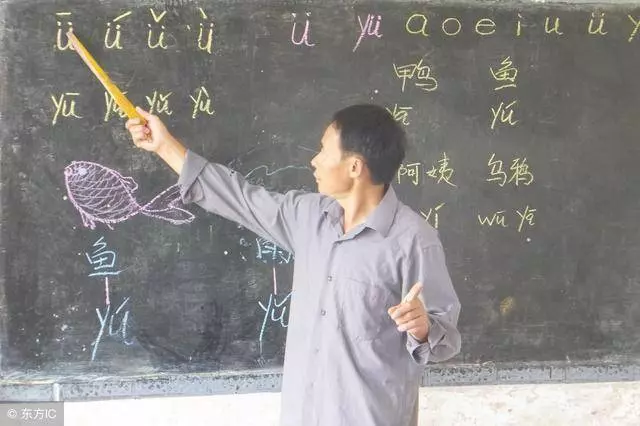 ǖ ǘ ǚ ǜ ü yü a o e i u ü y
鸭 鱼
yū yú yǔ yù yā yú
阿姨 乌鸦
yí wū yā
鱼
yú
© 东方IC